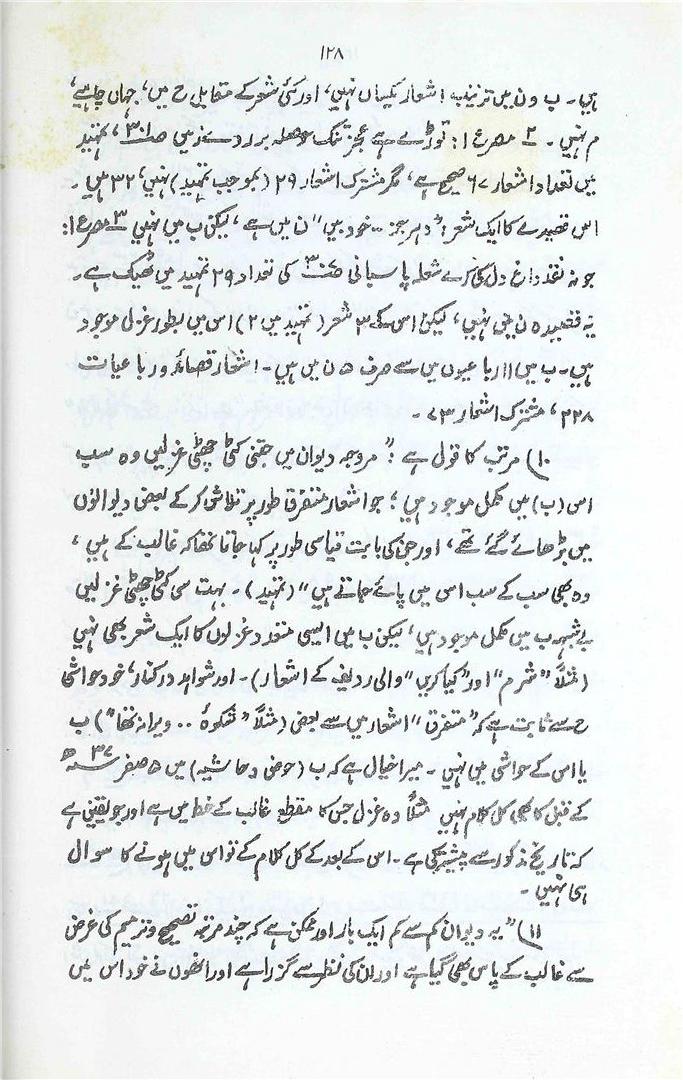 ۱۲۸
ہیں۔ ب و ن میں ترتیب اشعار یکساں نہیں، اور کئی شعر کے مقابل ح میں، جہاں چاہیے،
م نہیں۔ ۲ مصرع ۱: توڑے ہے عجز تنگ حوصلہ بر روے زمیں ص۳۰۱، تمہید
میں تعداد اشعار ۶۷ صحیح ہے، مگر مشترک اشعار ۲۹ (بموجب تمہید) نہیں، ۳۲ ہیں۔
اس قصیدے کا ایک شعر: "دہر جز .. خود بیں" ن میں ہے، لیکن ب میں نہیں ۳ مصرع ۱:
جو نہ نقد داغ دل کی کرے شعلہ پاسبانی کی تعداد ۲۹ تمہید میں ٹھیک ہے۔
یہ قصیدہ ن میں نہیں، لیکن اس کے ۳ شعر (تمہید میں ۲) اس میں بطور غزل موجود
ہیں۔ ب میں ۱۱ رباعیوں میں سے صرف ۵ ن میں ہیں۔ اشعار قصائد و رباعیات
۲۲۸، مشترک اشعار ۷۳۔
۱۰) مرتب کا قول ہے: "مروجہ دیوان میں جتنی کٹی چھٹی غزلیں وہ سب
اس (ب) میں مکمل موجود ہیں؛ جو اشعار متفرق طور پر تلاش کر کے بعض دیوانوں
میں بڑھائے گئے تھے، اور جن کی بابت قیاسی طور پر کہا جاتا تھا کہ غالب کے ہیں،
وہ بھی سب کے سب اس میں پائے جاتے ہیں" (تمہید)۔ بہت سی کٹی چھٹی غزلیں
بے شبہہ ب میں مکمل موجود ہیں، لیکن ب میں ایسی متعدد غزلوں کا ایک شعر بھی نہیں
(مثلاً "شرم" اور "کیا کریں" والی ردیف کے اشعار)۔ اور شواہد درکنار، خود حواشی
ح سے ثابت ہے کہ "متفرق" اشعار میں سے بعض (مثلاً "شکوۂ .. ویرانہ تھا") ب
یا اس کے حواشی میں نہیں۔ میرا خیال ہے کہ ب (حوض و حاشیہ) میں ۵ صفر ۳۷ھ
کے قبل کا بھی کل کلام نہیں مثلاً وہ غزل جس کا مقطع غالب کے خط میں ہے اور جو یقینی ہے
کہ تاریخ مذکور سے پیشتر کی ہے۔ اس کے بعد کے کل کلام کے تو اس میں ہونے کا سوال
ہی نہیں۔
۱۱) "یہ دیوان کم سے کم ایک بار اور ممکن ہے کہ چند مرتبہ تصحیح و ترمیم کی غرض
سے غالب کے پاس بھی گیا ہے اور ان کی نظر سے گزرا ہے اور انھوں نے خود اس میں